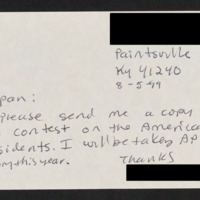 Paintsville
Ky 41240
8-5-99
span:
please send me a copy
contest on the America
sidents. I will be taking AP
this year.
Thanks